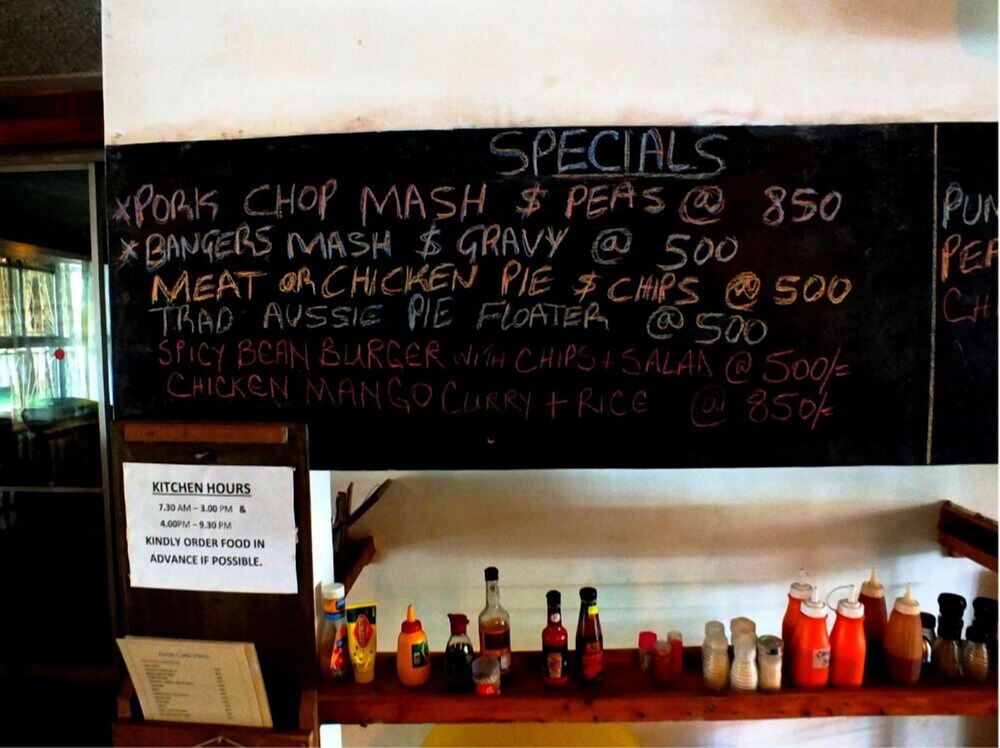 SPECIALS
*PORK CHOP MASH $ PEAS @ 850
*BANGERS MASH $ GRAVY @ 500
MEAT OR CHICKEN PIE $ CHIPS @ 500
TRAD AUSSIE PIE FLOATER @ 500
SPICY BEAN BURGER WITH CHIPS + SALAD @ 500/=
CHICKEN MANGO CURRY + RICE @ 850/=
PUN
PEP
CH
KITCHEN HOURS
7.30 AM – 3.00 PM &
4.00PM – 9.30 PM
KINDLY ORDER FOOD IN
ADVANCE IF POSSIBLE.